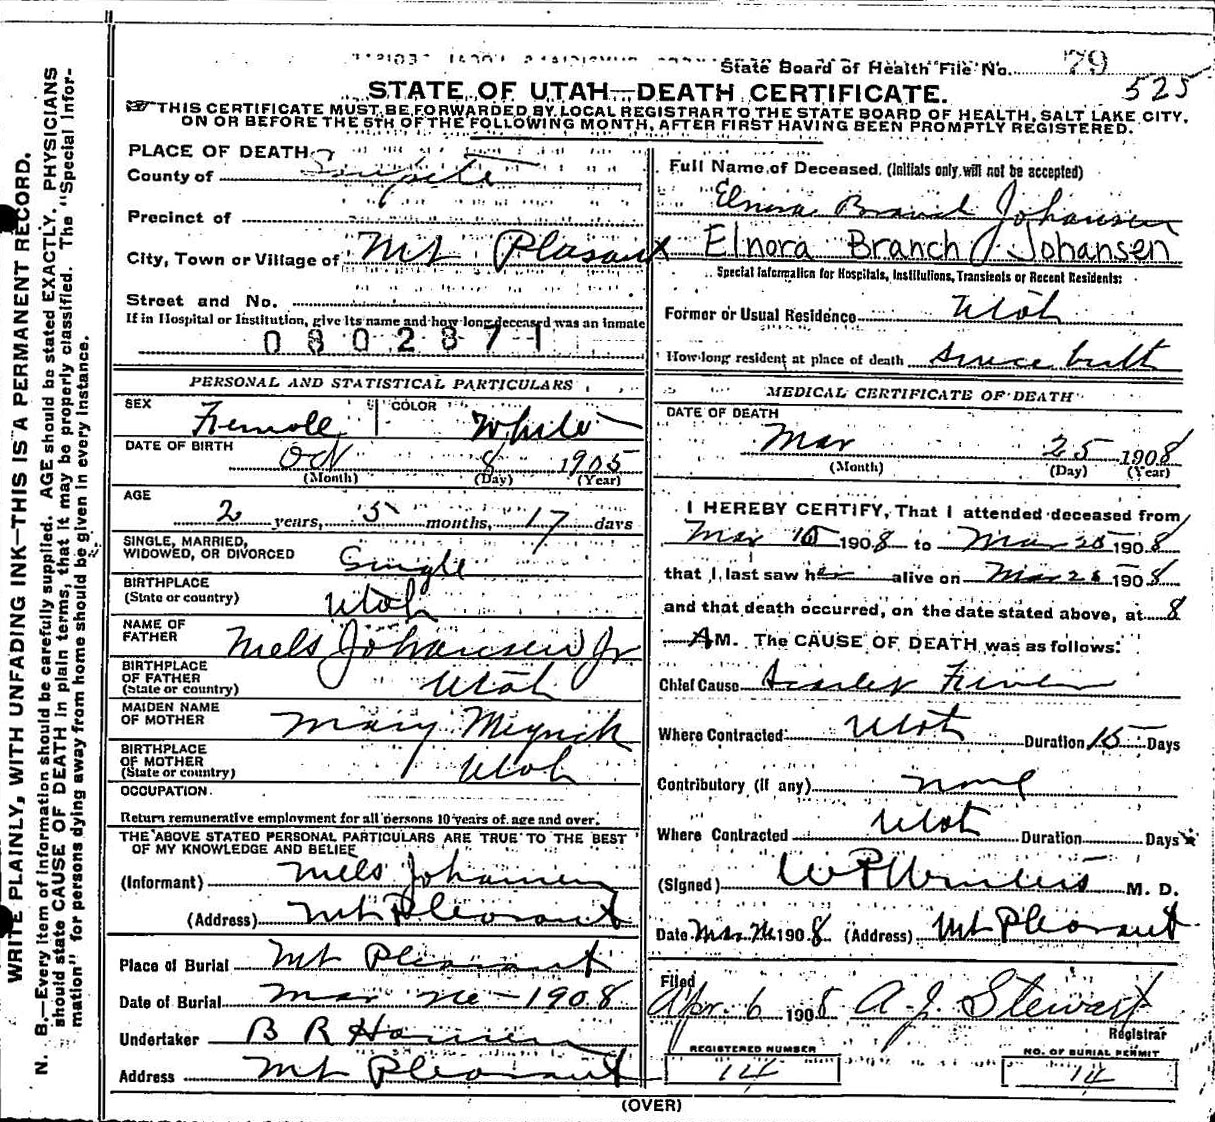 State Board of Health File No. 79
525
STATE OF UTAH—DEATH CERTIFICATE.
THIS CERTIFICATE MUST BE FORWARDED BY LOCAL REGISTRAR TO THE STATE BOARD OF HEALTH, SALT LAKE CITY,
ON OR BEFORE THE 5TH OF THE FOLLOWING MONTH, AFTER FIRST HAVING BEEN PROMPTLY REGISTERED.
WRITE PLAINLY, WITH UNFADING INK—THIS IS A PERMANENT RECORD.
N. B.—Every item of information should be carefully supplied. AGE should be stated EXACTLY. PHYSICIANS
should state CAUSE OF DEATH in plain terms, that it may be properly classified. The "Special Infor-
mation" for persons dying away from home should be given in every instance.
PLACE OF DEATH
County of Sanpete
Precinct of
City, Town or Village of Mt Plasant
Street and No.
If in Hospital or Institution, give its name and how long deceased was an inmate
0802871
PERSONAL AND STATISTICAL PARTICULARS
SEX Female COLOR White
DATE OF BIRTH Oct 8 1905
(Month) (Day) (Year)
AGE
2 years, 5 months, 17 days
SINGLE, MARRIED,
WIDOWED, OR DIVORCED Single
BIRTHPLACE
(State or country) Utah
NAME OF
FATHER Nels Johansen Jr
BIRTHPLACE
OF FATHER
(State or country) Utah
MAIDEN NAME
OF MOTHER Mary
BIRTHPLACE
OF MOTHER
(State or country) Utah
OCCUPATION
Return remunerative employment for all persons 10 years of age and over.
THE ABOVE STATED PERSONAL PARTICULARS ARE TRUE TO THE BEST
OF MY KNOWLEDGE AND BELIEF
(Informant) Nels Johansen
(Address) Mt Pleasant
Place of Burial Mt Pleasant
Date of Burial Mar 26 - 1908
Undertaker B R Hansen
Address Mt Pleasant
Full Name of Deceased. (Initials only will not be accepted)
Elnora Branch Johansen
Elnora Branch Johansen
Special Information for Hospitals, Institutions, Transients or Recent Residents:
Former or Usual Residence Utah
How long resident at place of death since birth
MEDICAL CERTIFICATE OF DEATH
DATE OF DEATH
Mar 25 1908
(Month) (Day) (Year)
I HEREBY CERTIFY, That I attended deceased from
Mar 10 1908 to Mar 25 1908
that I last saw her alive on Mar 25 1908
and that death occurred, on the date stated above, at 8
AM. The CAUSE OF DEATH was as follows:
Chief Cause Scarlet Fever
Where Contracted Utah Duration 15 Days
Contributory (if any) none
Where Contracted Utah Duration Days
(Signed) W P Winters M. D.
Date Mar 26 1908 (Address) Mt Pleasant
Filed
Apr. 6 1908 A. J. Stewart
Registrar
REGISTERED NUMBER
14
NO. OF BURIAL PERMIT
14
(OVER)